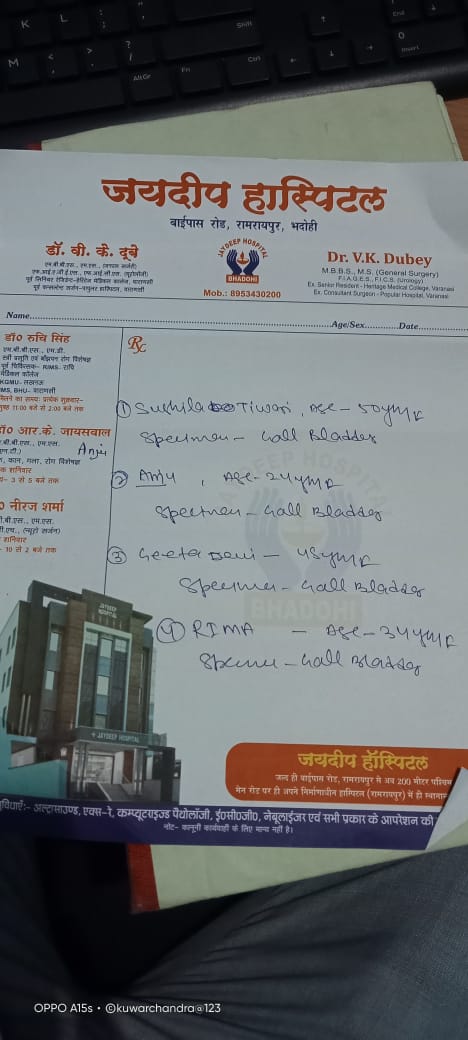 K
L
:
;
"
'
Shift
M
<
,
>
.
?
/
AltGr
Fn
Ctrl
End
0
Insert
जयदीप हास्पिटल
बाईपास रोड, रामरायपुर, भदोही
डॉ. वी. के. दूबे
JAYDEEP HOSPITAL
BHADOHI
Mob.: 8953430200
Dr. V.K. Dubey
M.B.B.S., M.S. (General Surgery)
F.I.A.G.E.S., F.I.C.S. (Urology)
Ex. Senior Resident - Heritage Medical College, Varanasi
Ex. Consultant Surgeon - Popular Hospital, Varanasi
Name..........Age/Sex..........Date..........
डॉ० रुचि सिंह
एम.बी.बी.एस., एम.डी.
स्त्री प्रसूति एवं बाँझपन रोग विशेषज्ञ
पूर्व चिकित्सक- RIMS- रांची
मेडिकल कॉलेज
KGMU- लखनऊ
IMS, BHU- वाराणसी
मिलने का समय: प्रत्येक शुक्रवार-
सुबह 11:00 बजे से 2:00 बजे तक
डॉ० आर.के. जायसवाल
.बी.बी.एस., एम.एस.
Anju
क, कान, गला, रोग विशेषज्ञ
शनिवार
- 3 से 5 बजे तक
० नीरज शर्मा
.बी.एस., एम.एस.
शनिवार
- 10 से 2 बजे तक
Rx
① Sushila Tiwari, Age - 50y/F
Specimen - Gall Bladder
② Anju, Age - 24y/F
Specimen - Gall Bladder
③ Geeta Devi - 45y/F
Specimen - Gall Bladder
④ RIMA - Age - 34y/F
Specimen - Gall Bladder
JAYDEEP HOSPITAL
BHADOHI
JAYDEEP HOSPITAL
+ JAYDEEP HOSPITAL
जयदीप हॉस्पिटल
जल्द ही बाईपास रोड, रामरायपुर से अब 200 मीटर पश्चिम
मेन रोड पर ही अपने निर्माणाधीन हास्पिटल (रामरायपुर) में ही स्थाना
सुविधाएँ:- अल्ट्रासाउण्ड, एक्स-रे, कम्प्यूटराइज्ड पैथोलॉजी, ई०सी०जी०, नेबूलाईजर एवं सभी प्रकार के आपरेशन की
नोट- कानूनी कार्यवाही के लिए मान्य नहीं है।
OPPO A15s • ©kuwarchandra@123